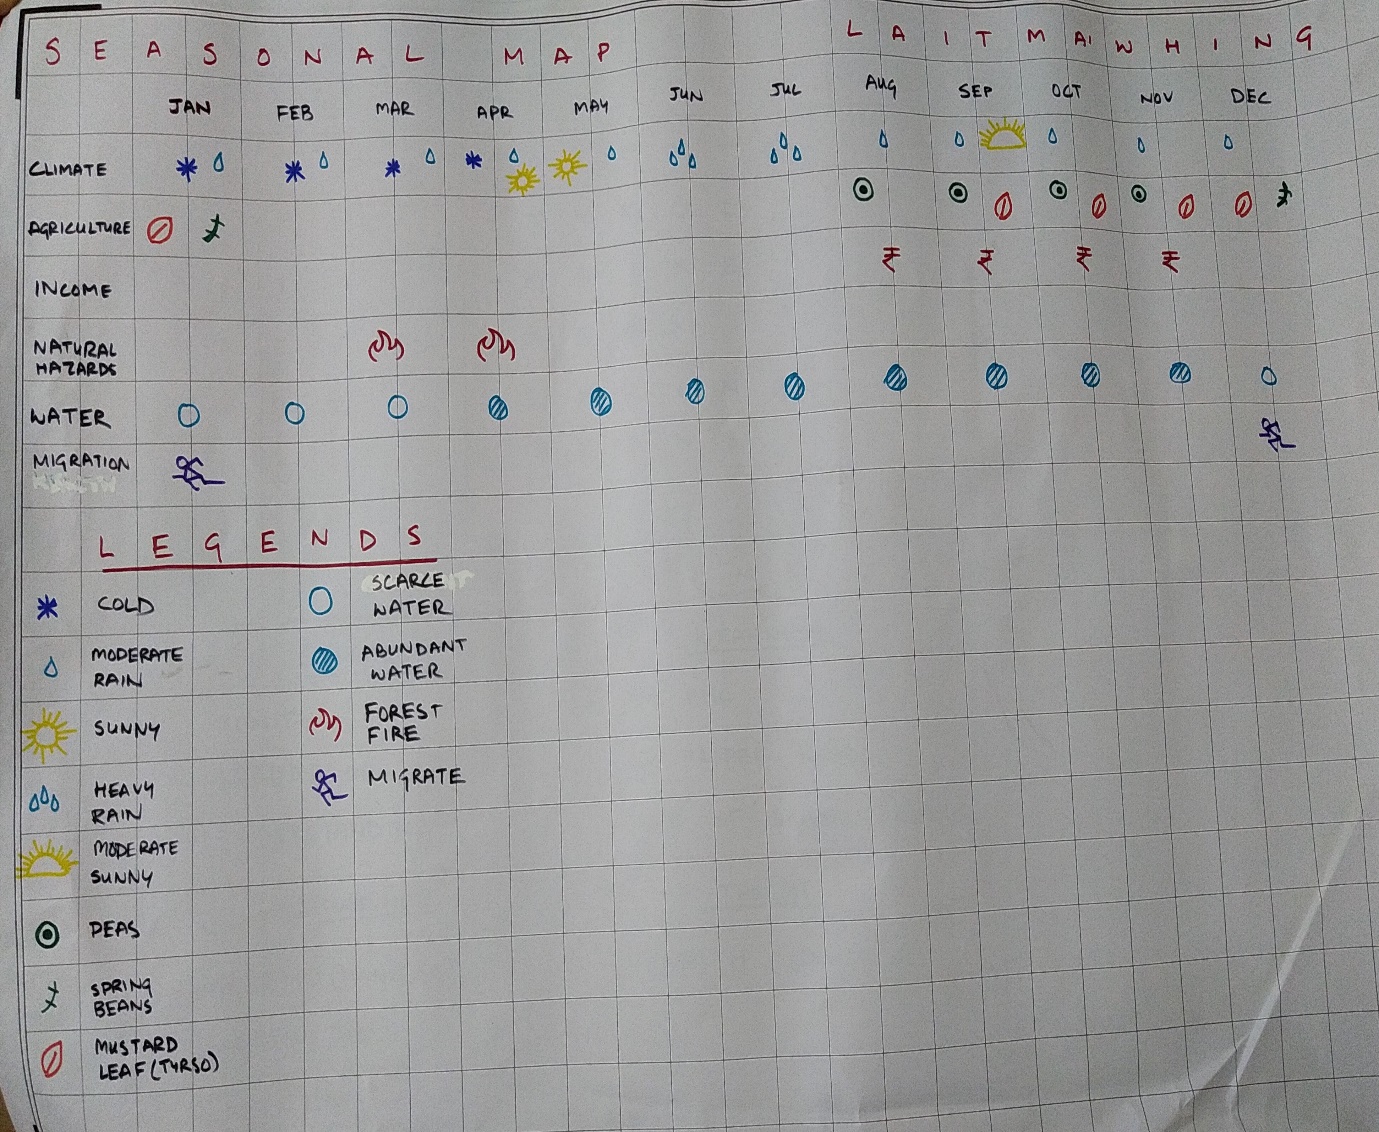 SEASONAL MAP LAITMAWHING
JAN FEB MAR APR MAY JUN JUL AUG SEP OCT NOV DEC
CLIMATE
AGRICULTURE
INCOME
₹ ₹ ₹ ₹
NATURAL
HAZARDS
WATER
MIGRATION
LEGENDS
COLD
SCARCE
WATER
MODERATE
RAIN
ABUNDANT
WATER
SUNNY
FOREST
FIRE
HEAVY
RAIN
MIGRATE
MODERATE
SUNNY
PEAS
SPRING
BEANS
MUSTARD
LEAF (TYRSO)